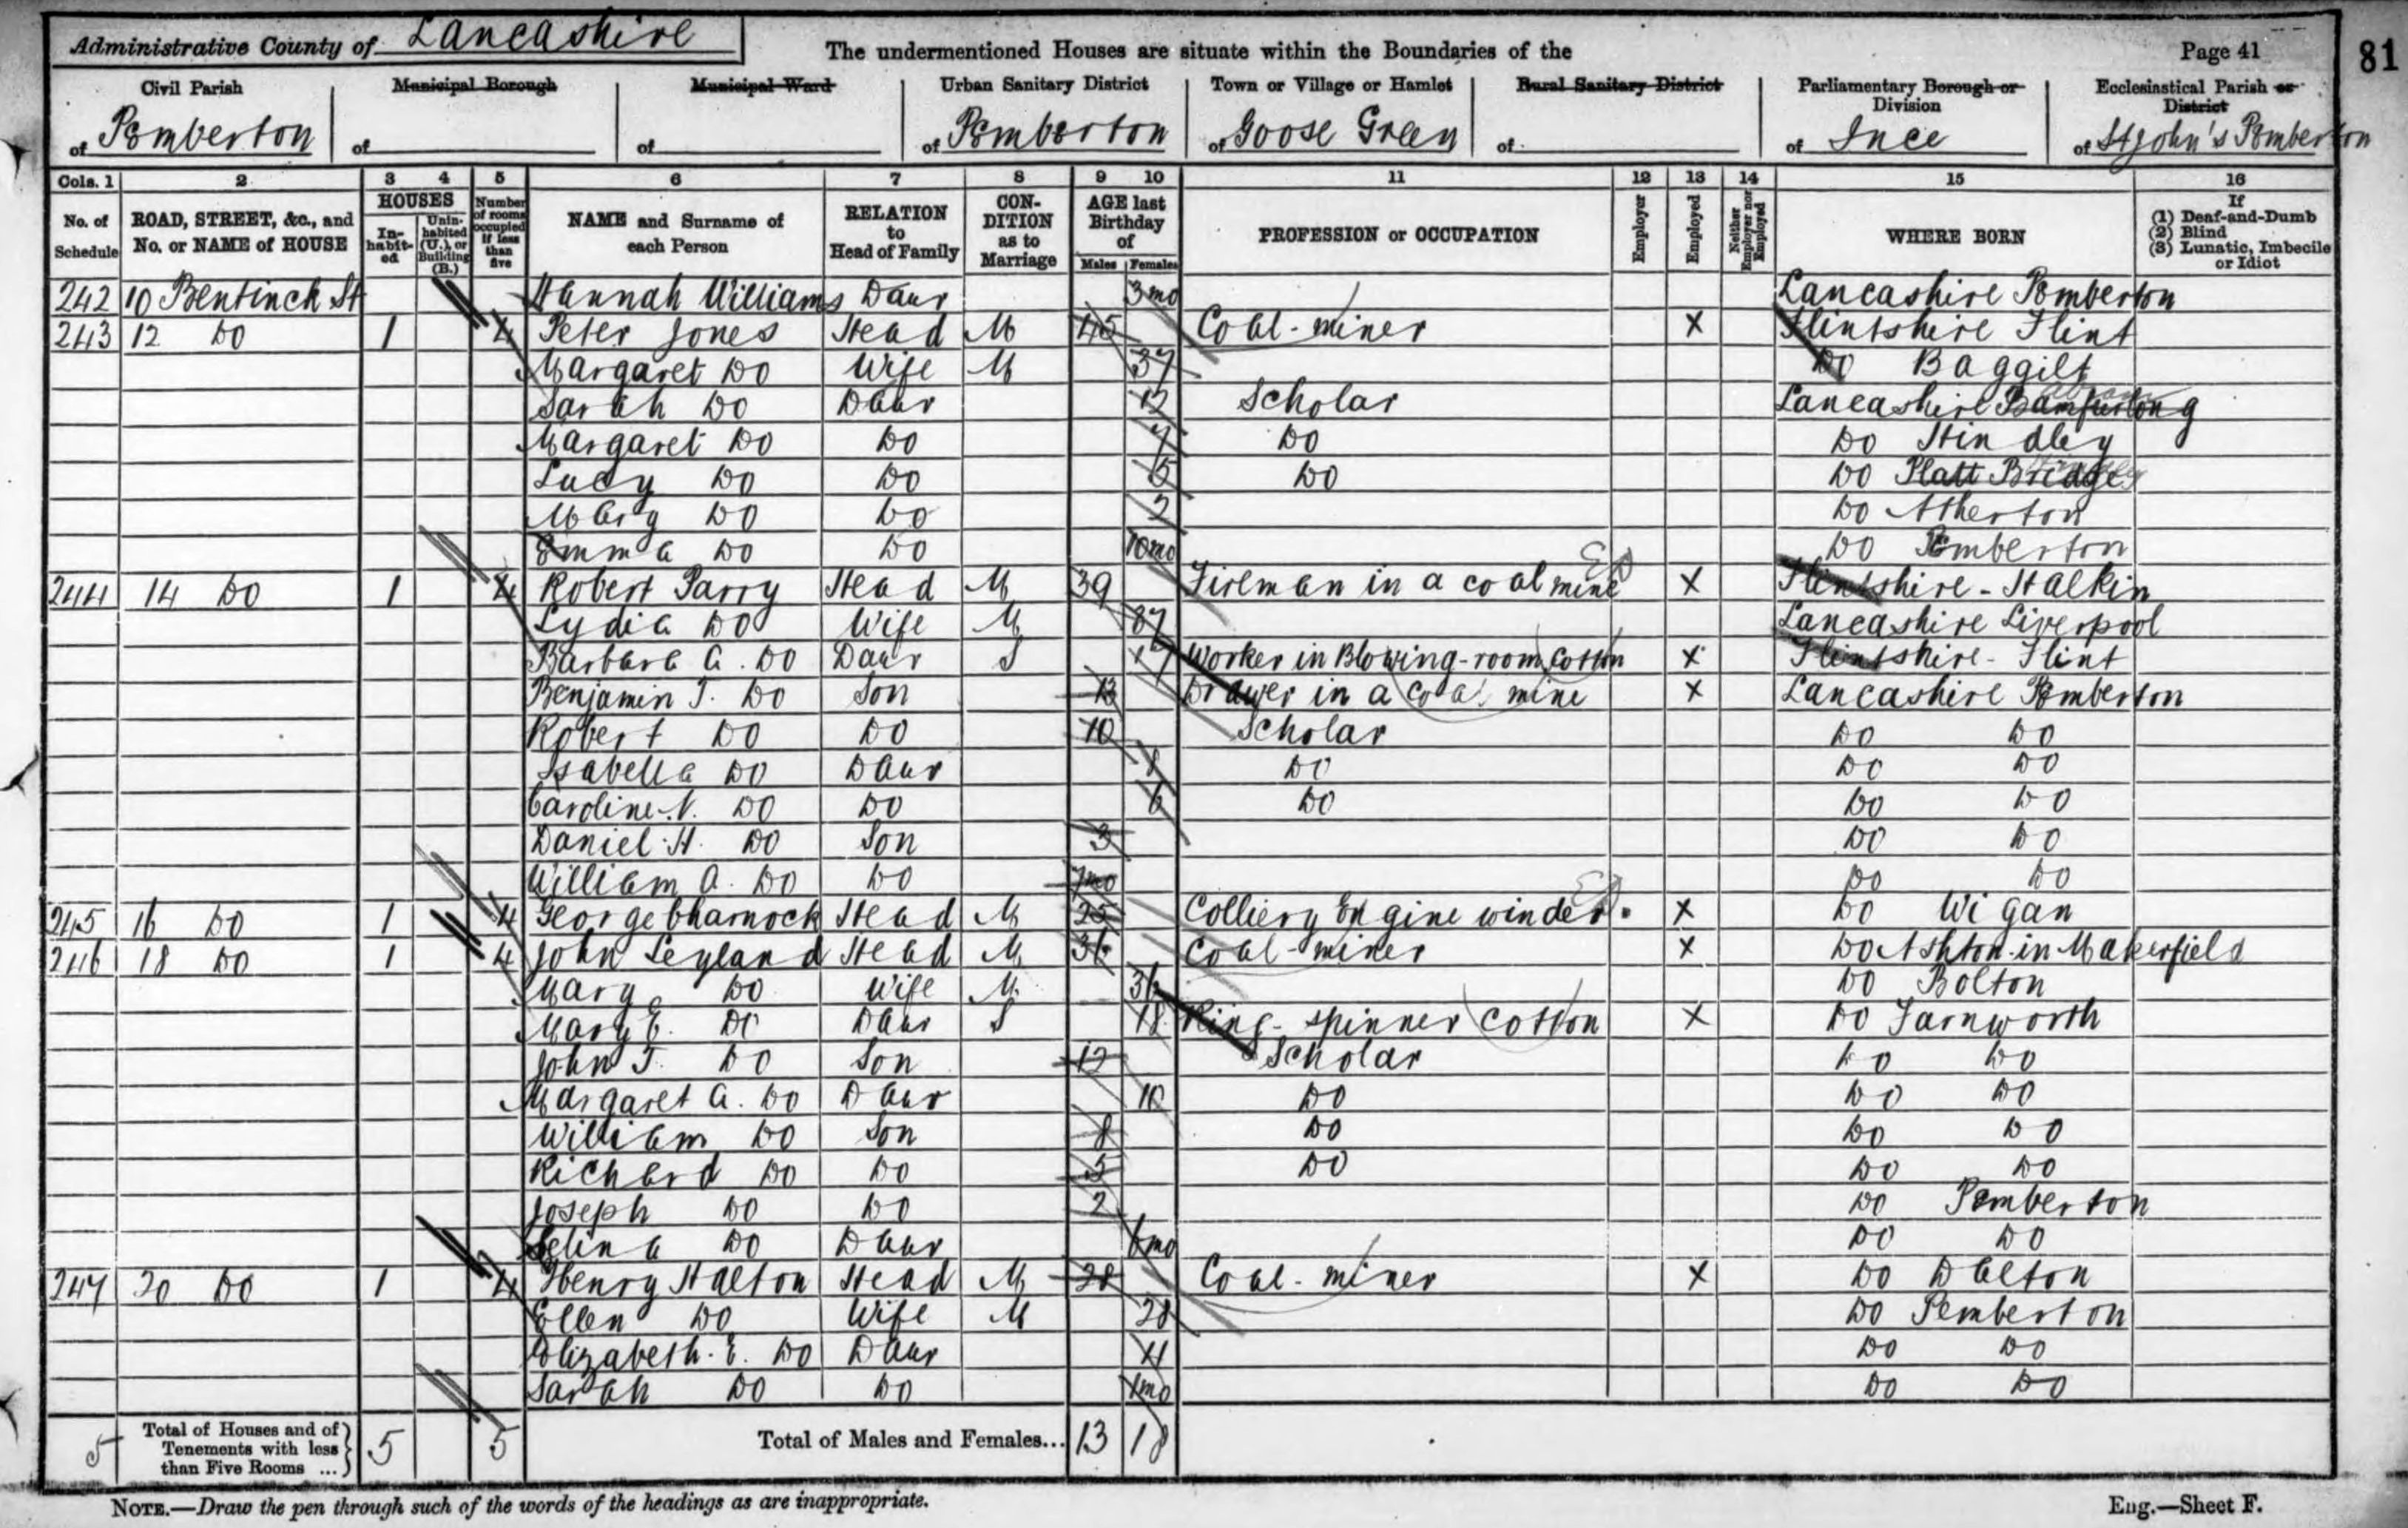 Administrative County of Lancashire The undermentioned Houses are situate within the Boundaries of the Page 41 81
Civil Parish Municipal Borough Municipal Ward Urban Sanitary District Town or Village or Hamlet Rural Sanitary District Parliamentary Borough or Division Ecclesiastical Parish or District
of Pemberton of of of Pemberton of Goose Green of of Ince of St John's Pemberton
Cols. 1 2 3 4 5 6 7 8 9 10 11 12 13 14 15 16
No. of Schedule ROAD, STREET, &c., and No. or NAME of HOUSE HOUSES Inhabited Uninhabited (U.), or Building (B.) Number of rooms occupied if less than five NAME and Surname of each Person RELATION to Head of Family CONDITION as to Marriage AGE last Birthday of Males Females PROFESSION or OCCUPATION Employer Employed Neither Employer nor Employed WHERE BORN If (1) Deaf-and-Dumb (2) Blind (3) Lunatic, Imbecile or Idiot
242 10 Bentinck St Hannah Williams Daur 3mo Lancashire Pemberton
243 12 Do 1 4 Peter Jones Head M 45 Coal-miner X Flintshire Flint
Margaret Do Wife M 37 Do Baggilt
Sarah Do Daur 12 Scholar Lancashire Bamfurlong
Margaret Do Do 7 Do Do Hindley
Lucy Do Do 5 Do Do Platt Bridge
Mary Do Do 2 Do Atherton
Emma Do Do 10mo Do Pemberton
244 14 Do 1 4 Robert Parry Head M 39 Fireman in a coal mine X Flintshire - Halkin
Lydia Do Wife M 37 Lancashire Liverpool
Barbara A. Do Daur S 17 Worker in Blowing-room Cotton X Flintshire - Flint
Benjamin T. Do Son 13 Drawer in a coal mine X Lancashire Pemberton
Robert Do Do 10 Scholar Do Do
Isabella Do Daur 8 Do Do Do
Caroline N. Do Do 6 Do Do Do
Daniel H. Do Son 3 Do Do
William A. Do Do 7mo Do Do
245 16 Do 1 4 George Charnock Head M 25 Colliery Engine winder. X Do Wigan
246 18 Do 1 4 John Leyland Head M 36 Coal-miner X Do Ashton-in-Makerfield
Mary Do Wife M 36 Do Bolton
Mary E. Do Daur S 18 Ring-spinner Cotton X Do Farnworth
John T. Do Son 12 Scholar Do Do
Margaret A. Do Daur 10 Do Do Do
William Do Son 8 Do Do Do
Richard Do Do 5 Do Do Do
Joseph Do Do 2 Do Pemberton
Selina Do Daur 6mo Do Do
247 20 Do 1 4 Henry Halton Head M 28 Coal-miner X Do Dalton
Ellen Do Wife M 28 Do Pemberton
Elizabeth. E. Do Daur 4 Do Do
Sarah Do Do 1mo Do Do
5 Total of Houses and of Tenements with less than Five Rooms ... 5 5 Total of Males and Females... 13 18
NOTE.—Draw the pen through such of the words of the headings as are inappropriate. Eng.—Sheet F.